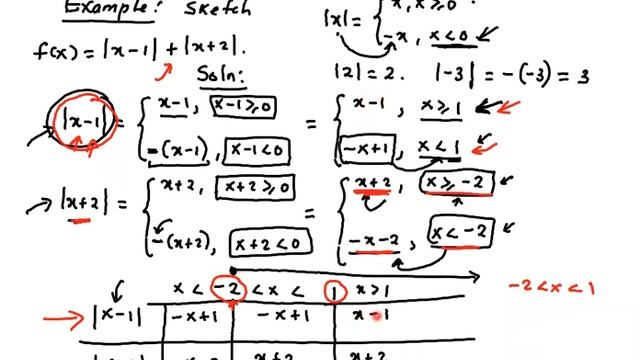 Example: Sketch
|x| = { x, x ≥ 0
-x, x < 0 .
f(x) = |x-1| + |x+2|.
Soln:
|2| = 2. |-3| = -(-3) = 3
|x-1| = { x-1, x-1 ≥ 0 = { x-1, x ≥ 1
-(x-1), x-1 < 0 -x+1, x < 1
|x+2| = { x+2, x+2 ≥ 0 = { x+2, x ≥ -2
-(x+2), x+2 < 0 -x-2, x < -2
x < -2 < x < 1 x > 1 -2 < x < 1
|x-1| -x+1 -x+1 x-1
x+2 x+2